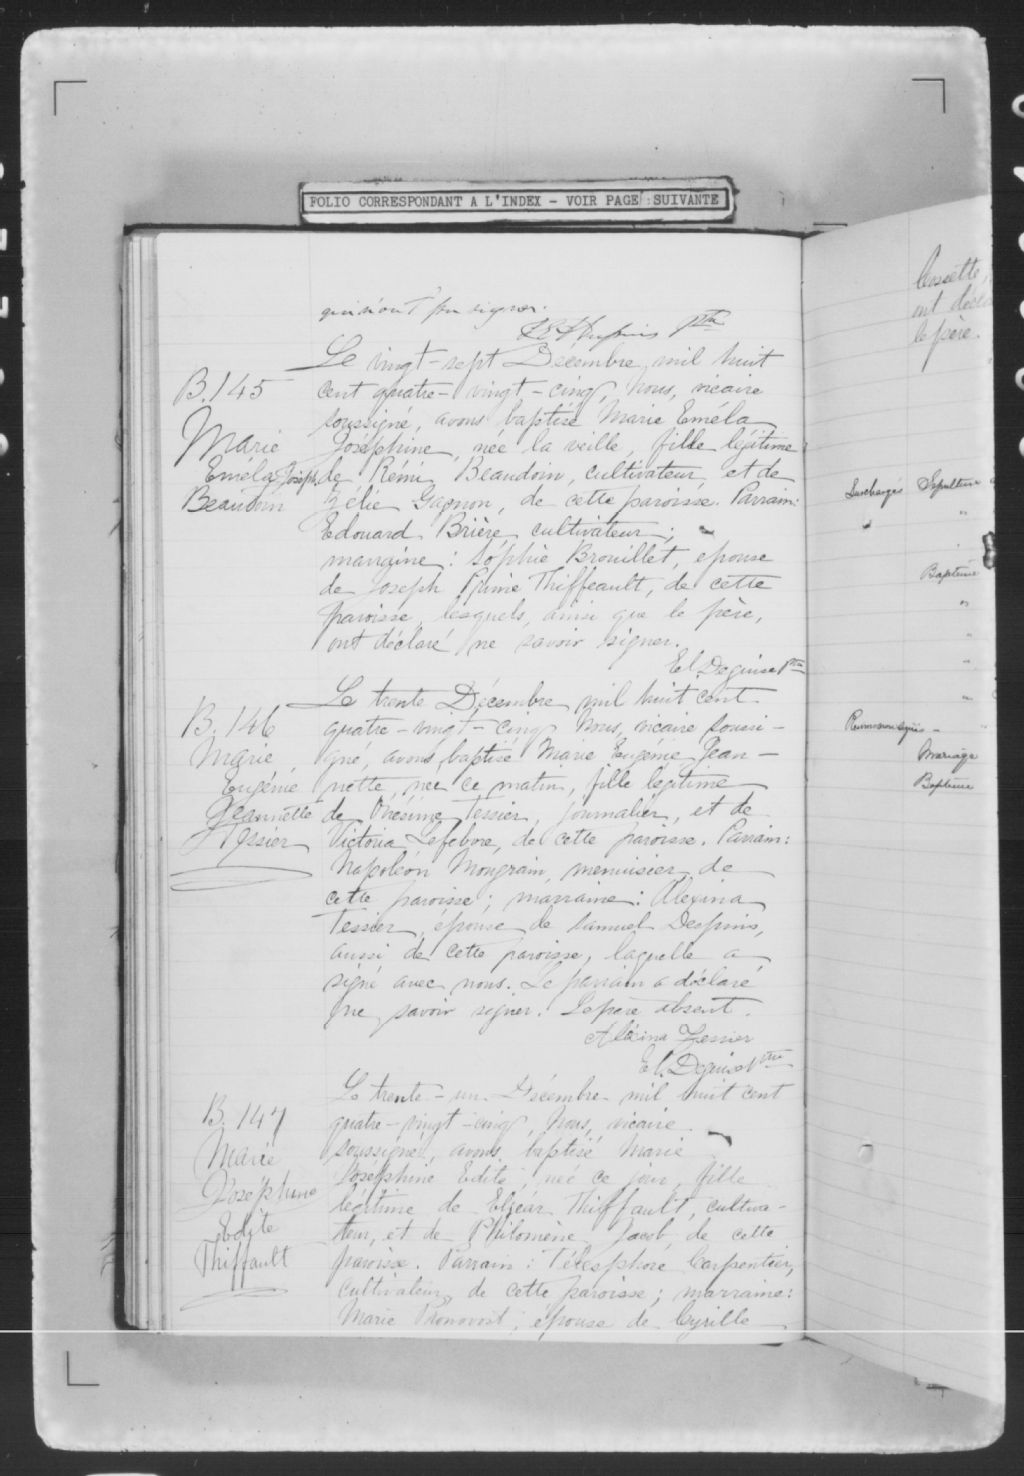 FOLIO CORRESPONDANT A L'INDEX - VOIR PAGE SUIVANTE
qui n'ont pu signer.
Ptre
B. 145
Marie
Eméla Joséph.
Beaudoin
Le vingt-sept Décembre mil huit
cent quatre-vingt-cinq, Nous, vicaire
soussigné, avons baptisé Marie Eméla
Joséphine, née la veille, fille légitime
de Rémi Beaudoin, cultivateur, et de
Zélie Gagnon, de cette paroisse. Parrain:
Edouard Brière cultivateur;
marraine: Sophie Brouillet, epouse
de Joseph Prime Thiffeault, de cette
paroisse, lesquels, ainsi que le père,
ont déclaré ne savoir signer.
El. Deguise Ptre
B. 146
Marie
Eugénie
Jeannette
Tessier
Le trente Décembre mil huit cent
quatre-vingt-cinq Nous, vicaire soussi-
gné, avons baptisé Marie Eugénie Jean-
nette, née ce matin, fille légitime
de Onésime Tessier, journalier, et de
Victoria Lefebvre, de cette paroisse. Parrain:
Napoléon Mongrain, menuisier de
cette paroisse; marraine: Alexina
Tessier, épouse de Samuel Despins,
aussi de cette paroisse, laquelle a
signé avec nous. Le parrain a déclaré
ne savoir signer. Le père absent.
Aléxina Tessier
El. Deguise Ptre
B. 147
Marie
Joséphine
Edite
Thiffault
Le trente-un Décembre mil huit cent
quatre-vingt-cinq, Nous, vicaire
soussigné, avons baptisé Marie
Joséphine Edite, née ce jour, fille
légitime de Elzéar Thiffault, cultiva-
teur, et de Philomène Jacob de cette
paroisse. Parrain: Télesphore Carpentier,
cultivateur de cette paroisse; marraine:
Marie Pronovost, épouse de Cyrille
Cossette,
ont décla
le père.
Surchargés Sépulture
"
Baptême
"
"
"
"
Mariage
Baptême